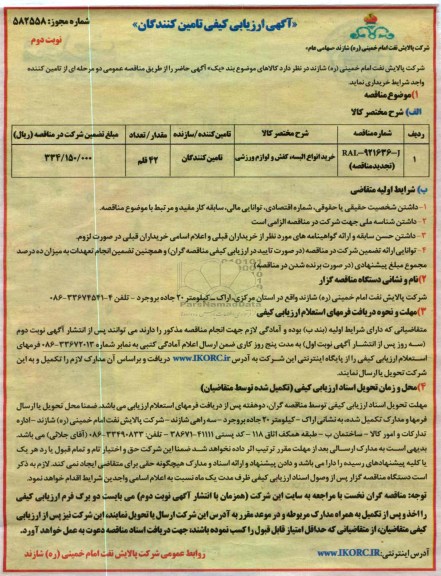 «آگهی ارزیابی کیفی تامین کنندگان»
شماره مجوز: ۵۸۲۵۵۸
نوبت دوم
شرکت پالایش نفت امام خمینی (ره) شازند «سهامی عام»
شرکت پالایش نفت امام خمینی (ره) شازند در نظر دارد کالاهای موضوع بند «یک» آگهی حاضر را از طریق مناقصه عمومی دو مرحله ای از تامین کننده
واجد شرایط خریداری نماید.
۱) موضوع مناقصه
الف) شرح مختصر کالا
ردیف شماره مناقصه شرح مختصر کالا تامین کننده/سازنده مقدار/تعداد مبلغ تضمین شرکت در مناقصه (ریال)
۱ RAL-۹۲۱۶۳۶-J (تجدید مناقصه) خرید انواع البسه، کفش و لوازم ورزشی تامین کنندگان ۴۲ قلم ۳۳۴/۱۵۰/۰۰۰
ب) شرایط اولیه متقاضی
۱- داشتن شخصیت حقیقی یا حقوقی، شماره اقتصادی، توانایی مالی، سابقه کار مفید و مرتبط با موضوع مناقصه.
۲- داشتن شناسه ملی جهت شرکت در مناقصه الزامی است
۳- داشتن حسن سابقه و ارائه گواهینامه های مورد نظر از خریداران قبلی و اعلام اسامی خریداران قبلی در صورت لزوم.
۴- توانایی ارائه تضمین شرکت در مناقصه (در صورت تایید در ارزیابی کیفی مناقصه گران) و همچنین تضمین انجام تعهدات به میزان ده درصد
مجموع مبلغ پیشنهادی (در صورت برنده شدن در مناقصه)
۲) نام و نشانی دستگاه مناقصه گزار
شرکت پالایش نفت امام خمینی (ره) شازند واقع در استان مرکزی، اراک - کیلومتر ۲۰ جاده بروجرد - تلفن ۴-۳۳۶۷۴۵۴۱-۰۸۶
۳) مهلت و نحوه دریافت فرمهای استعلام ارزیابی کیفی
متقاضیانی که دارای شرایط اولیه (بند ب) بوده و آمادگی لازم جهت انجام مناقصه مذکور را دارند می توانند پس از انتشار آگهی نوبت دوم
(سه روز پس از انتشار آگهی نوبت اول) به مدت پنج روز کاری ضمن ارسال اعلام آمادگی کتبی به نمابر شماره ۳۳۶۷۲۰۱۳-۰۸۶ فرمهای
استعلام ارزیابی کیفی را از پایگاه اینترنتی این شرکت به آدرس WWW.IKORC.ir دریافت و براساس آن مدارک لازم را تکمیل و به این
شرکت تحویل یا ارسال نمایند.
۴) محل و زمان تحویل اسناد ارزیابی کیفی (تکمیل شده توسط متقاضیان)
مهلت تحویل اسناد ارزیابی کیفی توسط مناقصه گران، دو هفته پس از دریافت فرمهای استعلام ارزیابی می باشد. ضمنا محل تحویل یا ارسال
فرمها و مدارک تکمیل شده، به نشانی اراک - کیلومتر ۲۰ جاده بروجرد - سه راهی شازند - شرکت پالایش نفت امام خمینی (ره) شازند - اداره
تدارکات و امور کالا - ساختمان ب - طبقه همکف اتاق ۱۱۸ - کد پستی ۴۱۱۱۱-۳۸۶۷۱ - تلفن: ۳۳۴۹۰۸۳۳-۰۸۶ (آقای جلالی) می باشد.
بدیهی است به مدارک ارسالی بعد از مهلت مقرر ترتیب اثر داده نخواهد شد. ضمنا این شرکت حق و اختیار تام و تمام قبول یا رد هر یک
یا کلیه پیشنهادهای رسیده را دارا می باشد و دادن پیشنهاد و ارائه اسناد و مدارک هیچگونه حقی برای متقاضی ایجاد نمی کند. لازم به ذکر
است دستگاه مناقصه گزار پس از وصول اسناد ارزیابی کیفی ظرف مدت یک ماه نسبت به اعلام اسامی واجدین شرایط اقدام خواهد نمود.
توجه: مناقصه گران نخست با مراجعه به سایت این شرکت (همزمان با انتشار آگهی نوبت دوم) می بایست دو برگ فرم ارزیابی کیفی
را اخذ و پس از تکمیل به همراه مدارک مربوطه و در موعد مقرر به آدرس این شرکت ارسال یا تحویل نمایند، این شرکت نیز پس از ارزیابی
کیفی متقاضیان، از متقاضیانی که حداقل امتیاز قابل قبول را کسب نموده باشند؛ جهت دریافت اسناد مناقصه دعوت به عمل خواهد آورد.
آدرس اینترنتی: WWW.IKORC.IR
روابط عمومی شرکت پالایش نفت امام خمینی (ره) شازند